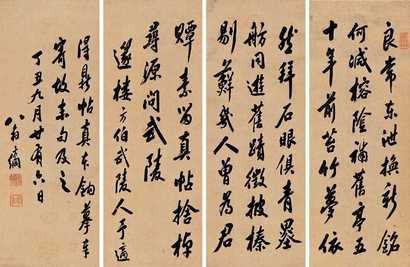 良常東池換新銘
何減榕陰補舊亭五
十年前苔竹夢依
然拜石眼俱青墨
舫同舊蹟徵披榛
剔蘚幾人曾為君
贉素留真帖捨棹
尋源問武陵
遂樓方伯武陵人予適
得鼎帖真本鉤摹奉
寄故末句及之
丁丑九月廿有六日
八十五綱